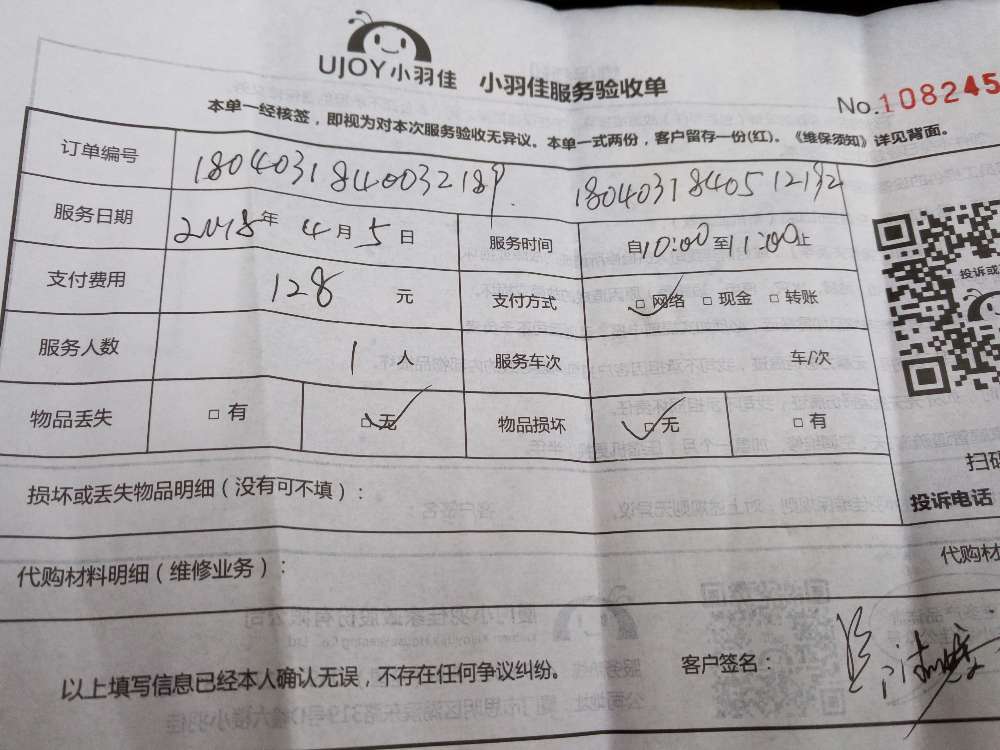 UJOY小羽佳 小羽佳服务验收单
No.108245
本单一经核签，即视为对本次服务验收无异议。本单一式两份，客户留存一份(红)。《维保须知》详见背面。
订单编号 180403184003218 18040318405121
服务日期 2018年 4月5日 服务时间 自10:00至11:00止
支付费用 128 元 支付方式 □网络 □现金 □转账
服务人数 1人 服务车次 车/次
物品丢失 □有 □无 物品损坏 □无 □有
损坏或丢失物品明细（没有可不填）：
投诉电话
代购材料明细（维修业务）：
以上填写信息已经本人确认无误，不存在任何争议纠纷。 客户签名：